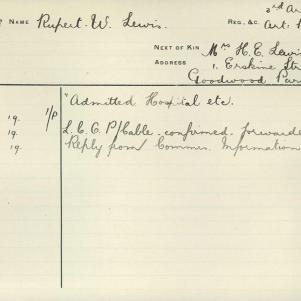 3rd Ar
NAME Rupert. W. Lewis.
REG., &C. Art:
NEXT OF KIN Mrs H. E. Lewis
ADDRESS 1, Erskine Str
Goodwood Par
"Admitted Hospital etc.
19. 1/P
19. L. C. C. P/Cable confirmed, forwarde
19. Reply from Commes. Information